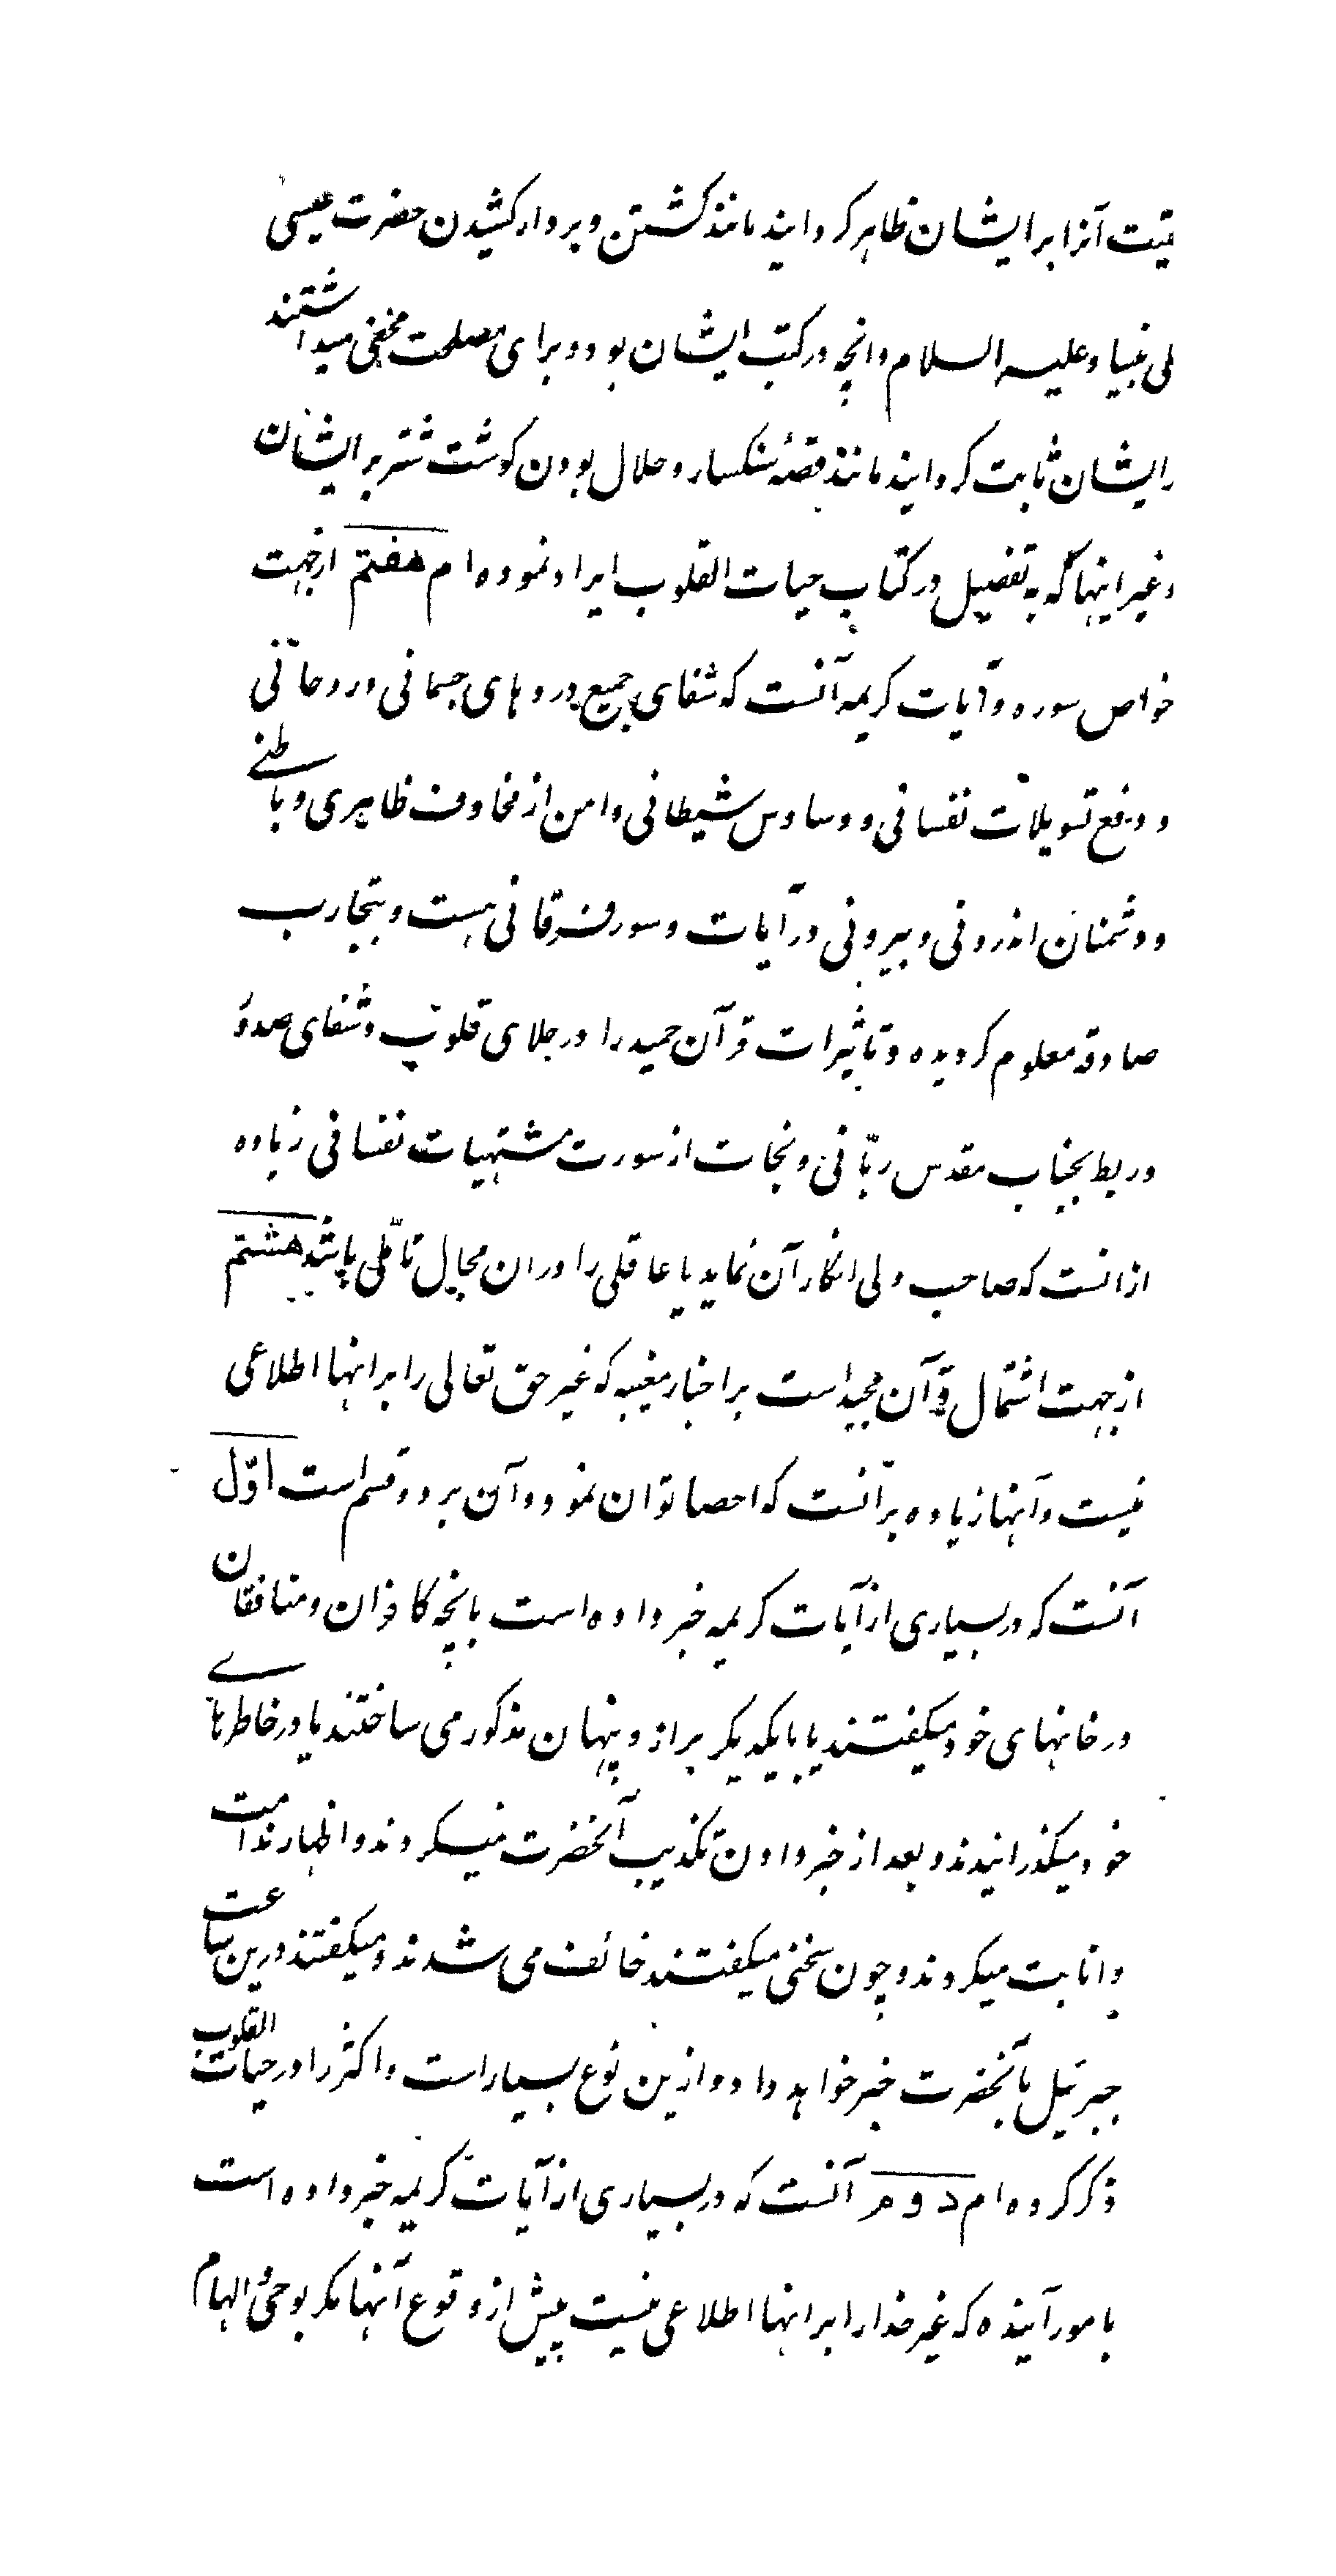 قیت آنرا بر ایشان ظاهر کردانید مانند کشتن و بر دار کشیدن حضرت عیسی
لی نبینا و علیه السلام و انچه در کتب ایشان بود و برای مصلحت مخفی میداشتند
بر ایشان ثابت کردانید مانند قصهٔ سنکسار و حلال بودن کوشت شتر بر ایشان
و غیر اینها که به تفصیل در کتاب حیات القلوب ایراد نموده ام هفتم از جهت
خواص سوره و آیات کریمه آنست که شفای جمیع دردهای جسمانی و روحانی
و دفع تسویلات نفسانی و وساوس شیطانی و امن از مخاوف ظاهری و باطنے
و دشمنان اندرونی و بیرونی در آیات و سور فرقانی هست و بتجارب
صادقه معلوم کردیده و تاثیرات قرآن حمید را در جلای قلوب و شفای صدور
و ربط بجناب مقدس ربّانی و نجات از سورت مشتهیات نفسانی زیاده
ازانست که صاحب دلی انکار آن نماید یا عاقلی را دران مجال تأملی باشد هشتم
از جهت اشتمال قرآن مجید است بر اخبار مغیبه که غیر حق تعالی را بر انها اطلاعی
نیست و آنها زیاده بر آنست که احصا توان نمود و آن بر دو قسم است اوّل
آنست که در بسیاری از آیات کریمه خبر داده است بانچه کافران و منافقان
در خانهای خود میکفتند یا با یکدیکر براز و پنهان مذکور می ساختند یا در خاطرهاے
خود میکذرانیدند و بعد از خبر دادن تکذیب آنحضرت نمیکردند و اظهار ندامت
و انابت میکردند و چون سخنی میکفتند خائف می شدند و میکفتند درین ساعت
جبرئیل بآنحضرت خبر خواهد داد و ازین نوع بسیار است و اکثر را در حیات القلوب
ذکر کرده ام دوم آنست که در بسیاری از آیات کریمه خبر داده است
بامور آینده که غیر خدا را بر انها اطلاعی نیست پیش از وقوع آنها مکر بوحی و الهام